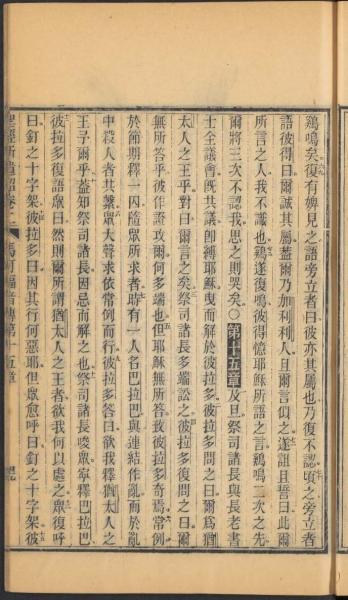 鷄鳴矣復有婢見之語旁立者曰彼亦其屬也乃復不認頃之旁立者
語彼得曰爾誠其屬蓋爾乃加利利人且爾言似之遂詛且誓曰此爾
所言之人我不識也鷄遂復鳴彼得憶耶穌所語之言鷄鳴二次之先
爾將三次不認我思之則哭矣〇第十五章及旦祭司諸長與長老書
士全議會既共議卽縛耶穌曳而解於彼拉多彼拉多問之曰爾爲猶
太人之王乎對曰爾言之矣祭司諸長多端訟之彼拉多復問之曰爾
無所答乎彼作證攻爾何多端也但耶穌無所答致彼拉多奇焉常例
於節期釋一囚隨眾所求者時有一人名巴拉巴與連結作亂而於亂
中殺人者共繫眾大聲求依常例而行彼拉多答曰欲我釋猶太人之
王予爾乎蓋知祭司諸長因忌而解之也祭司諸長唆眾寧釋巴拉巴
彼拉多復語眾曰然則爾所謂猶太人之王者欲我何以處之眾復呼
曰釘之十字架彼拉多曰因其行何惡耶但眾愈呼曰釘之十字架彼
聖經新遺詔卷二 馬可福音傳第十五章